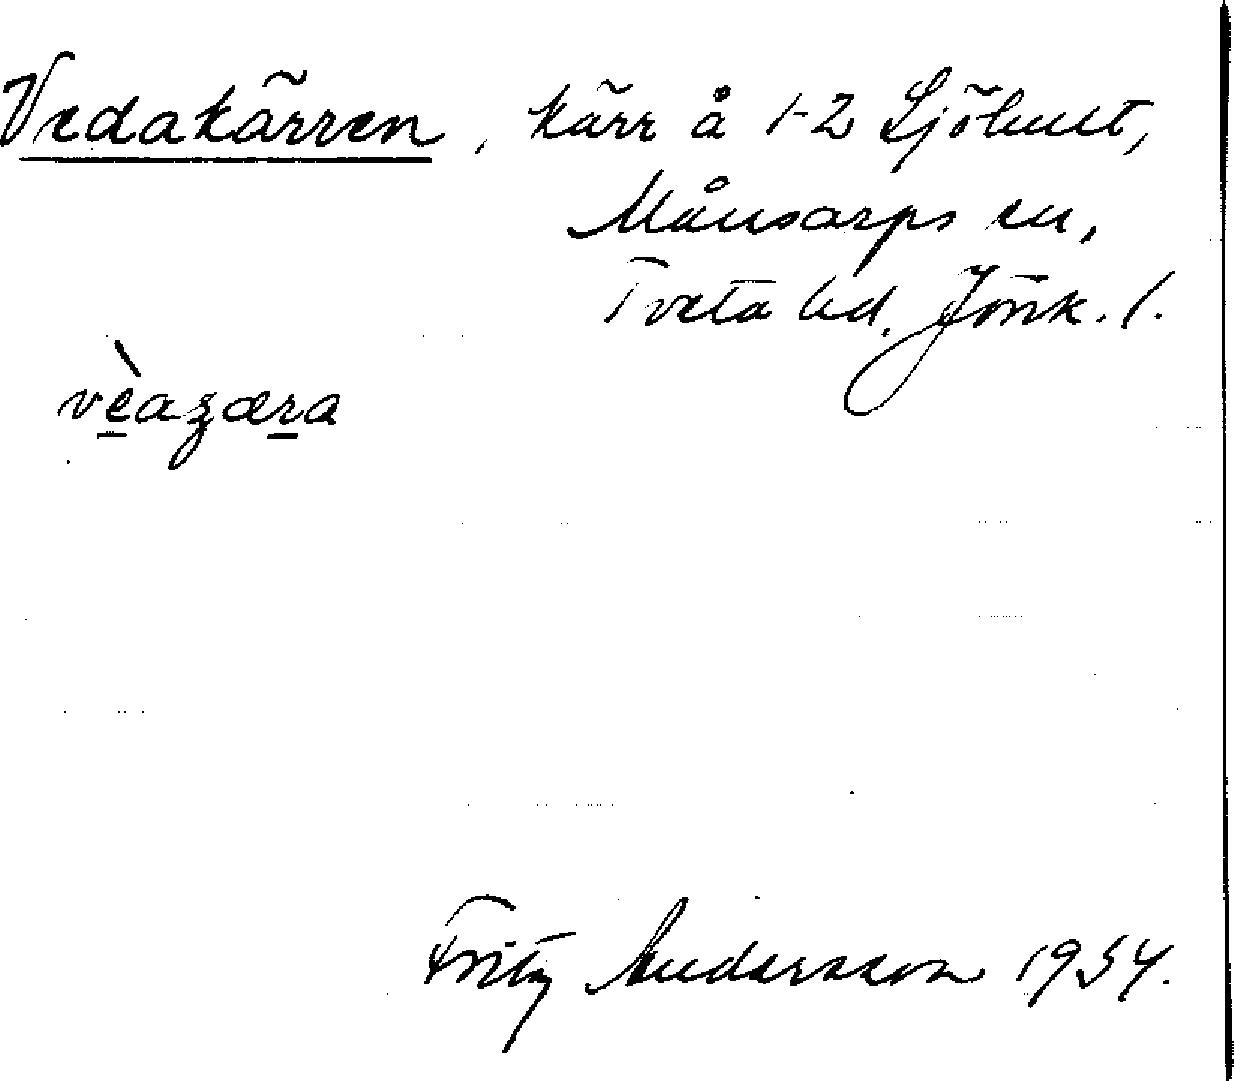 Vedakärren, kärr å 1-2 Sjöhult,
Månsarps sn,
Tveta hd. Jönk. l.
vèazæra
Fritz Andersson 1934.